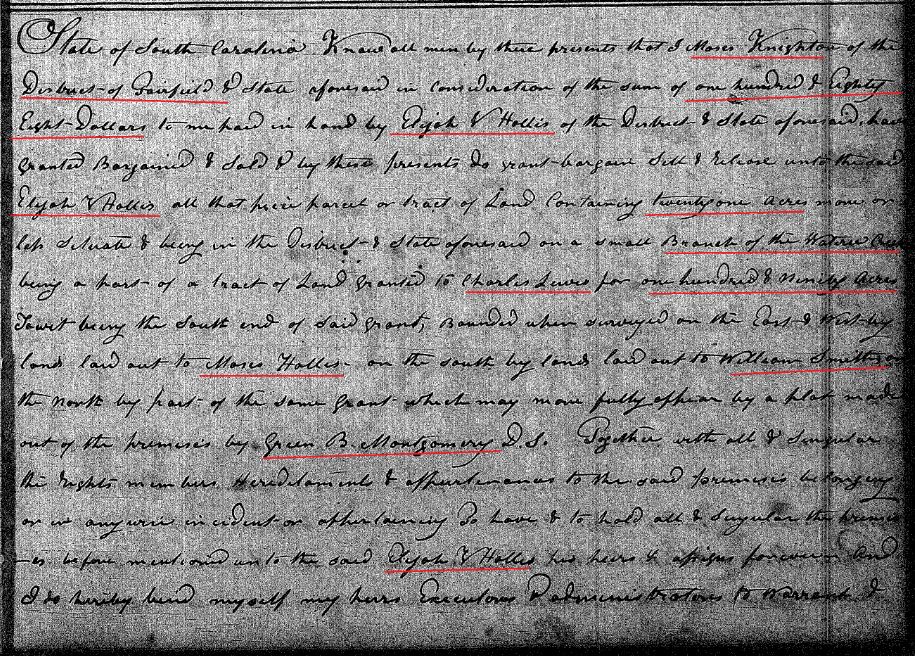 State of South Carolina Know all men by these presents that I Moses Knighton of the
District of Fairfield & State aforesaid in Consideration of the sum of one hundred & Eighty
Eight Dollars to me paid in hand by Elijah Y Hollis of the District & State aforesaid, have
granted Bargained & Sold & by these presents do grant bargain Sell & Release unto the said
Elijah Y Hollis all that piece parcel or tract of Land Containing twenty one Acres more or
less Situate & being in the District & State aforesaid on a small Branch of the Wateree
being a part of a tract of Land granted to Charles Lewis for one hundred & Ninety Acres
Towit being the South end of said grant, Bounded when surveyed on the East & West by
land laid out to Moses Hollis on the south by land laid out to William Smith on
the North by part of the same grant which may more fully appear by a plat made
out of the premises by Green B. Montgomery D. S. Together with all & Singular
the Rights members Hereditaments & appurtenances to the said premises belonging
or in any wise incident or appertaining To have & to hold all & Singular the premis
-es before mentioned unto the said Elijah Y Hollis his heirs & assigns forever And
I do hereby bind myself my heirs Executors & administrators to Warrant &